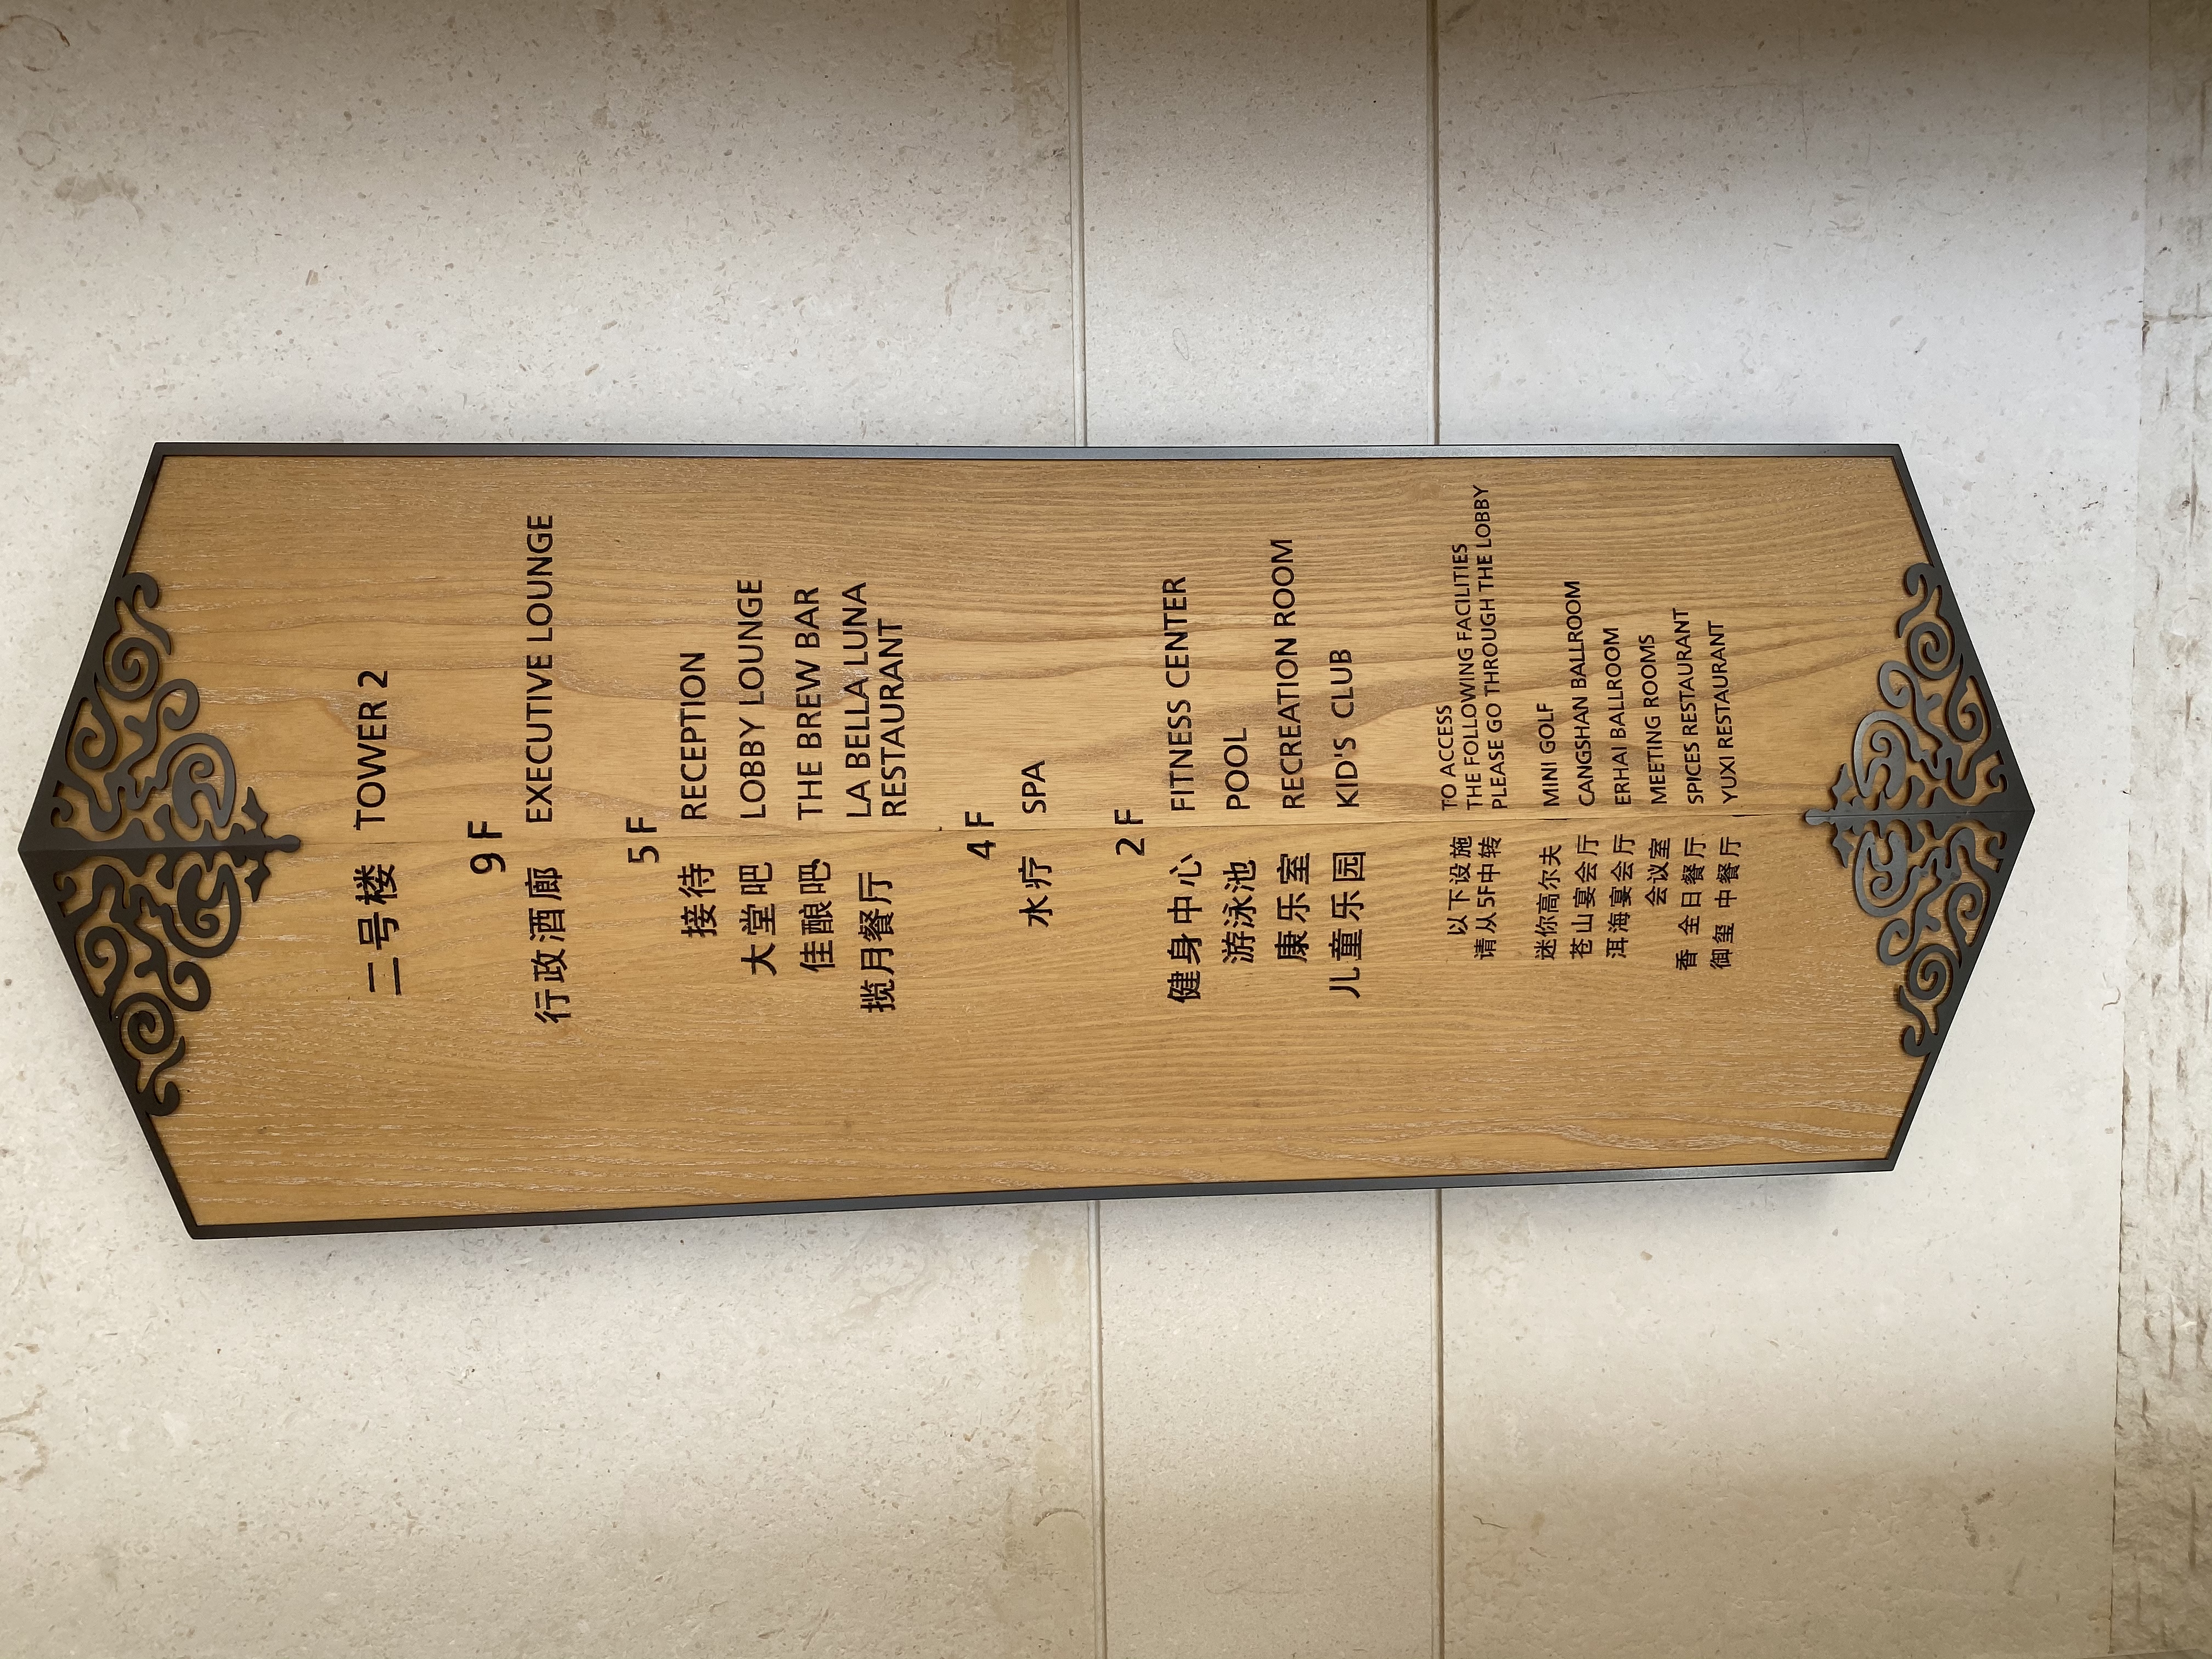 二号楼 TOWER 2
9F
行政酒廊 EXECUTIVE LOUNGE
5F
接待 RECEPTION
大堂吧 LOBBY LOUNGE
佳酿吧 THE BREW BAR
揽月餐厅 LA BELLA LUNA
RESTAURANT
4F
水疗 SPA
2F
健身中心 FITNESS CENTER
游泳池 POOL
康乐室 RECREATION ROOM
儿童乐园 KID'S CLUB
TO ACCESS
以下设施 THE FOLLOWING FACILITIES
请从5F中转 PLEASE GO THROUGH THE LOBBY
迷你高尔夫 MINI GOLF
苍山宴会厅 CANGSHAN BALLROOM
洱海宴会厅 ERHAI BALLROOM
会议室 MEETING ROOMS
香 全日餐厅 SPICES RESTAURANT
御玺 中餐厅 YUXI RESTAURANT